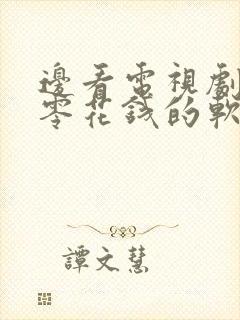 邊看電視劇
零花錢的軟
譚文慧